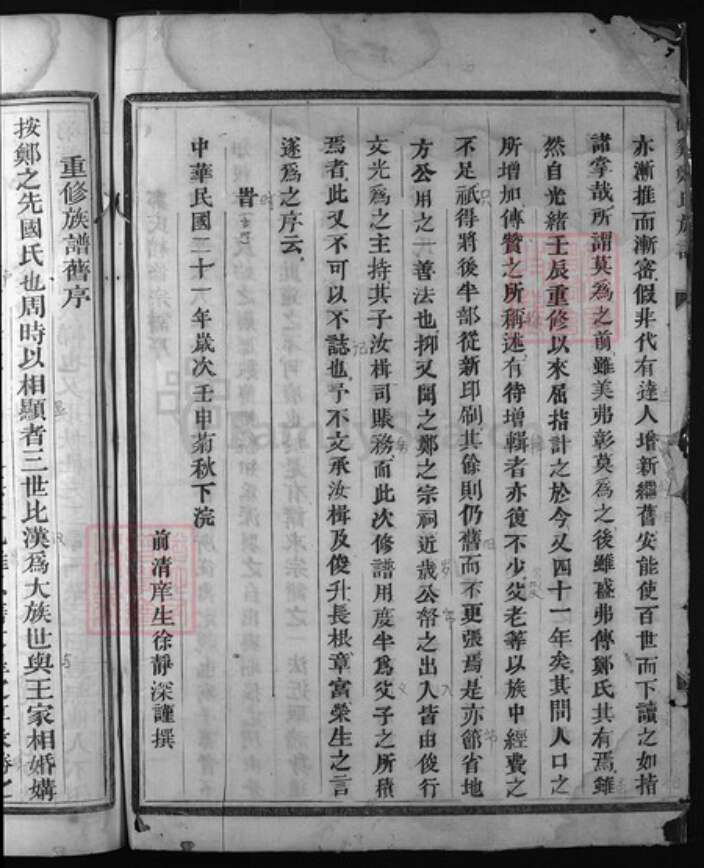 亦漸推而漸密假非代有達人增新繼舊安能使百世而下讀之如指
諸掌哉所謂莫為之前雖美弗彰莫為之後雖盛弗傳鄭氏其有焉雖
然自光緒壬辰重修以來屈指計之於今又四十一年矣其間人口之
所增加傳贊之所稱述有待增輯者亦復不少父老等以族中經費之
不足祇得將後半部從新印刷其餘則仍舊而不更張焉是亦節省地
方公用之一善法也抑又聞之鄭之宗祠近歲公帑之出入皆由俊行
文光為之主持其子汝楫司賬務而此次修譜用度半為父子之所積
焉者此又不可以不誌也予不文承汝楫及俊升長根章富榮生之言
遂為之序云
旹
中華民國二十一年歲次壬申菊秋下浣
前清庠生徐靜深謹撰
重修族譜舊序
按鄭之先國氏也周時以相顯者三世比漢為大族世與王家相婚媾